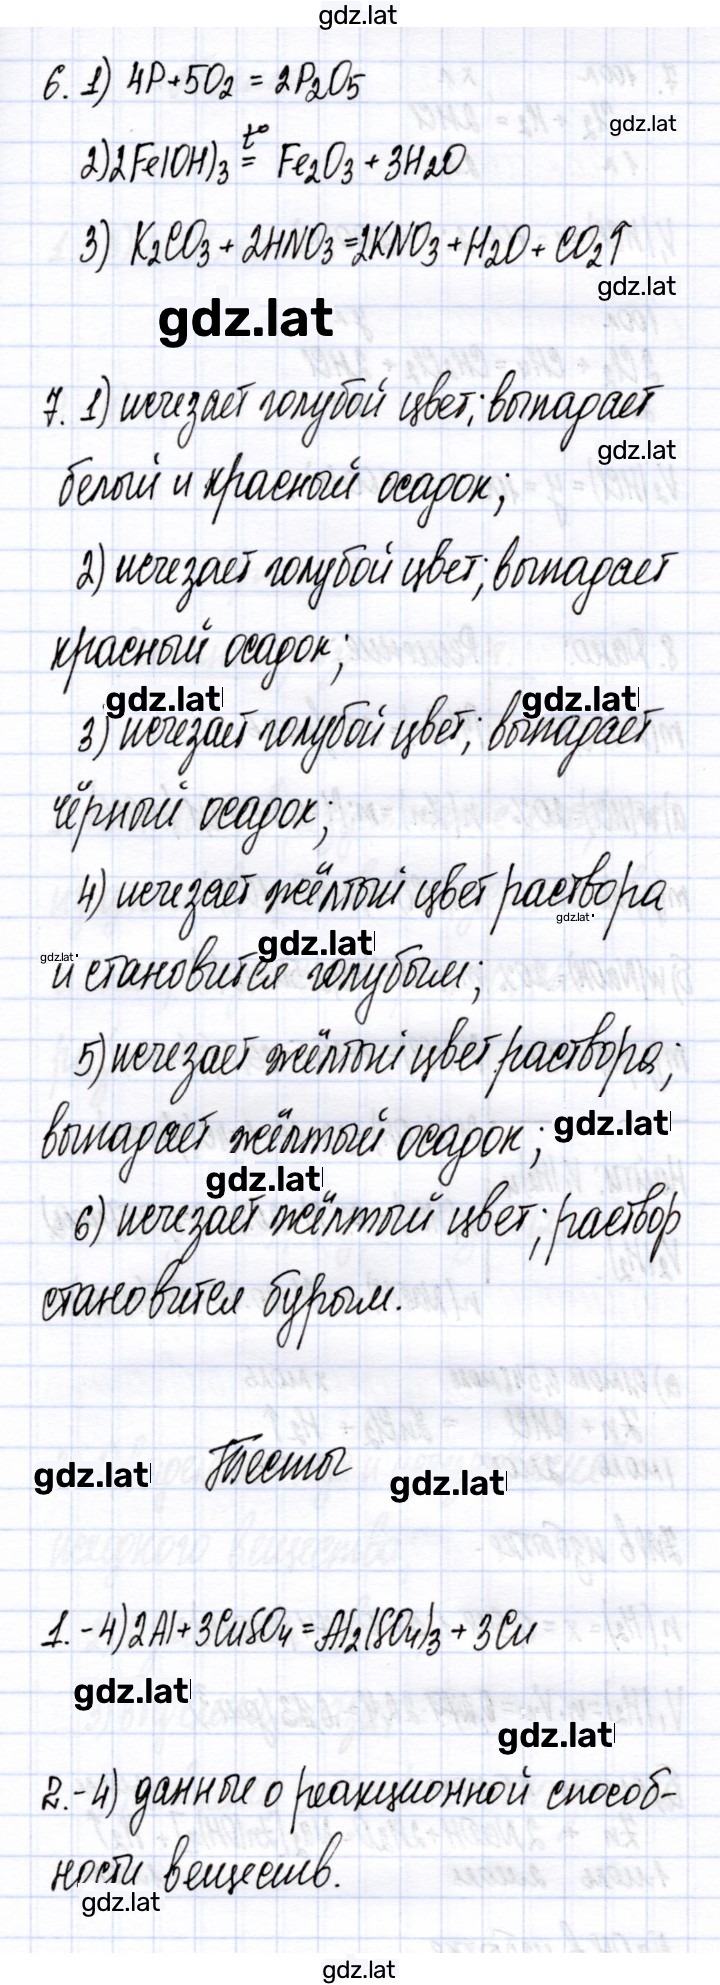 gdz.lat
6. 1) 4P+5O₂ = 2P₂O₅
gdz.lat
2) 2Fe(OH)₃ =t° Fe₂O₃ + 3H₂O
3) K₂CO₃ + 2HNO₃ = 2KNO₃ + H₂O + CO₂↑
gdz.lat
gdz.lat
7. 1) исчезает голубой цвет; выпадает
gdz.lat
белый и красный осадок;
2) исчезает голубой цвет; выпадает
красный осадок;
gdz.lat gdz.lat
3) исчезает голубой цвет; выпадает
чёрный осадок;
4) исчезает жёлтый цвет раствора
gdz.lat
gdz.lat gdz.lat
и становится голубым;
5) исчезает жёлтый цвет раствора;
выпадает жёлтый осадок; gdz.lat
gdz.lat
6) исчезает жёлтый цвет; раствор
становится бурым.
gdz.lat Тесты gdz.lat
1. - 4) 2Al + 3CuSO₄ = Al₂(SO₄)₃ + 3Cu
gdz.lat
gdz.lat
2. - 4) данные о реакционной способ-
ности веществ.
gdz.lat
gdz.lat